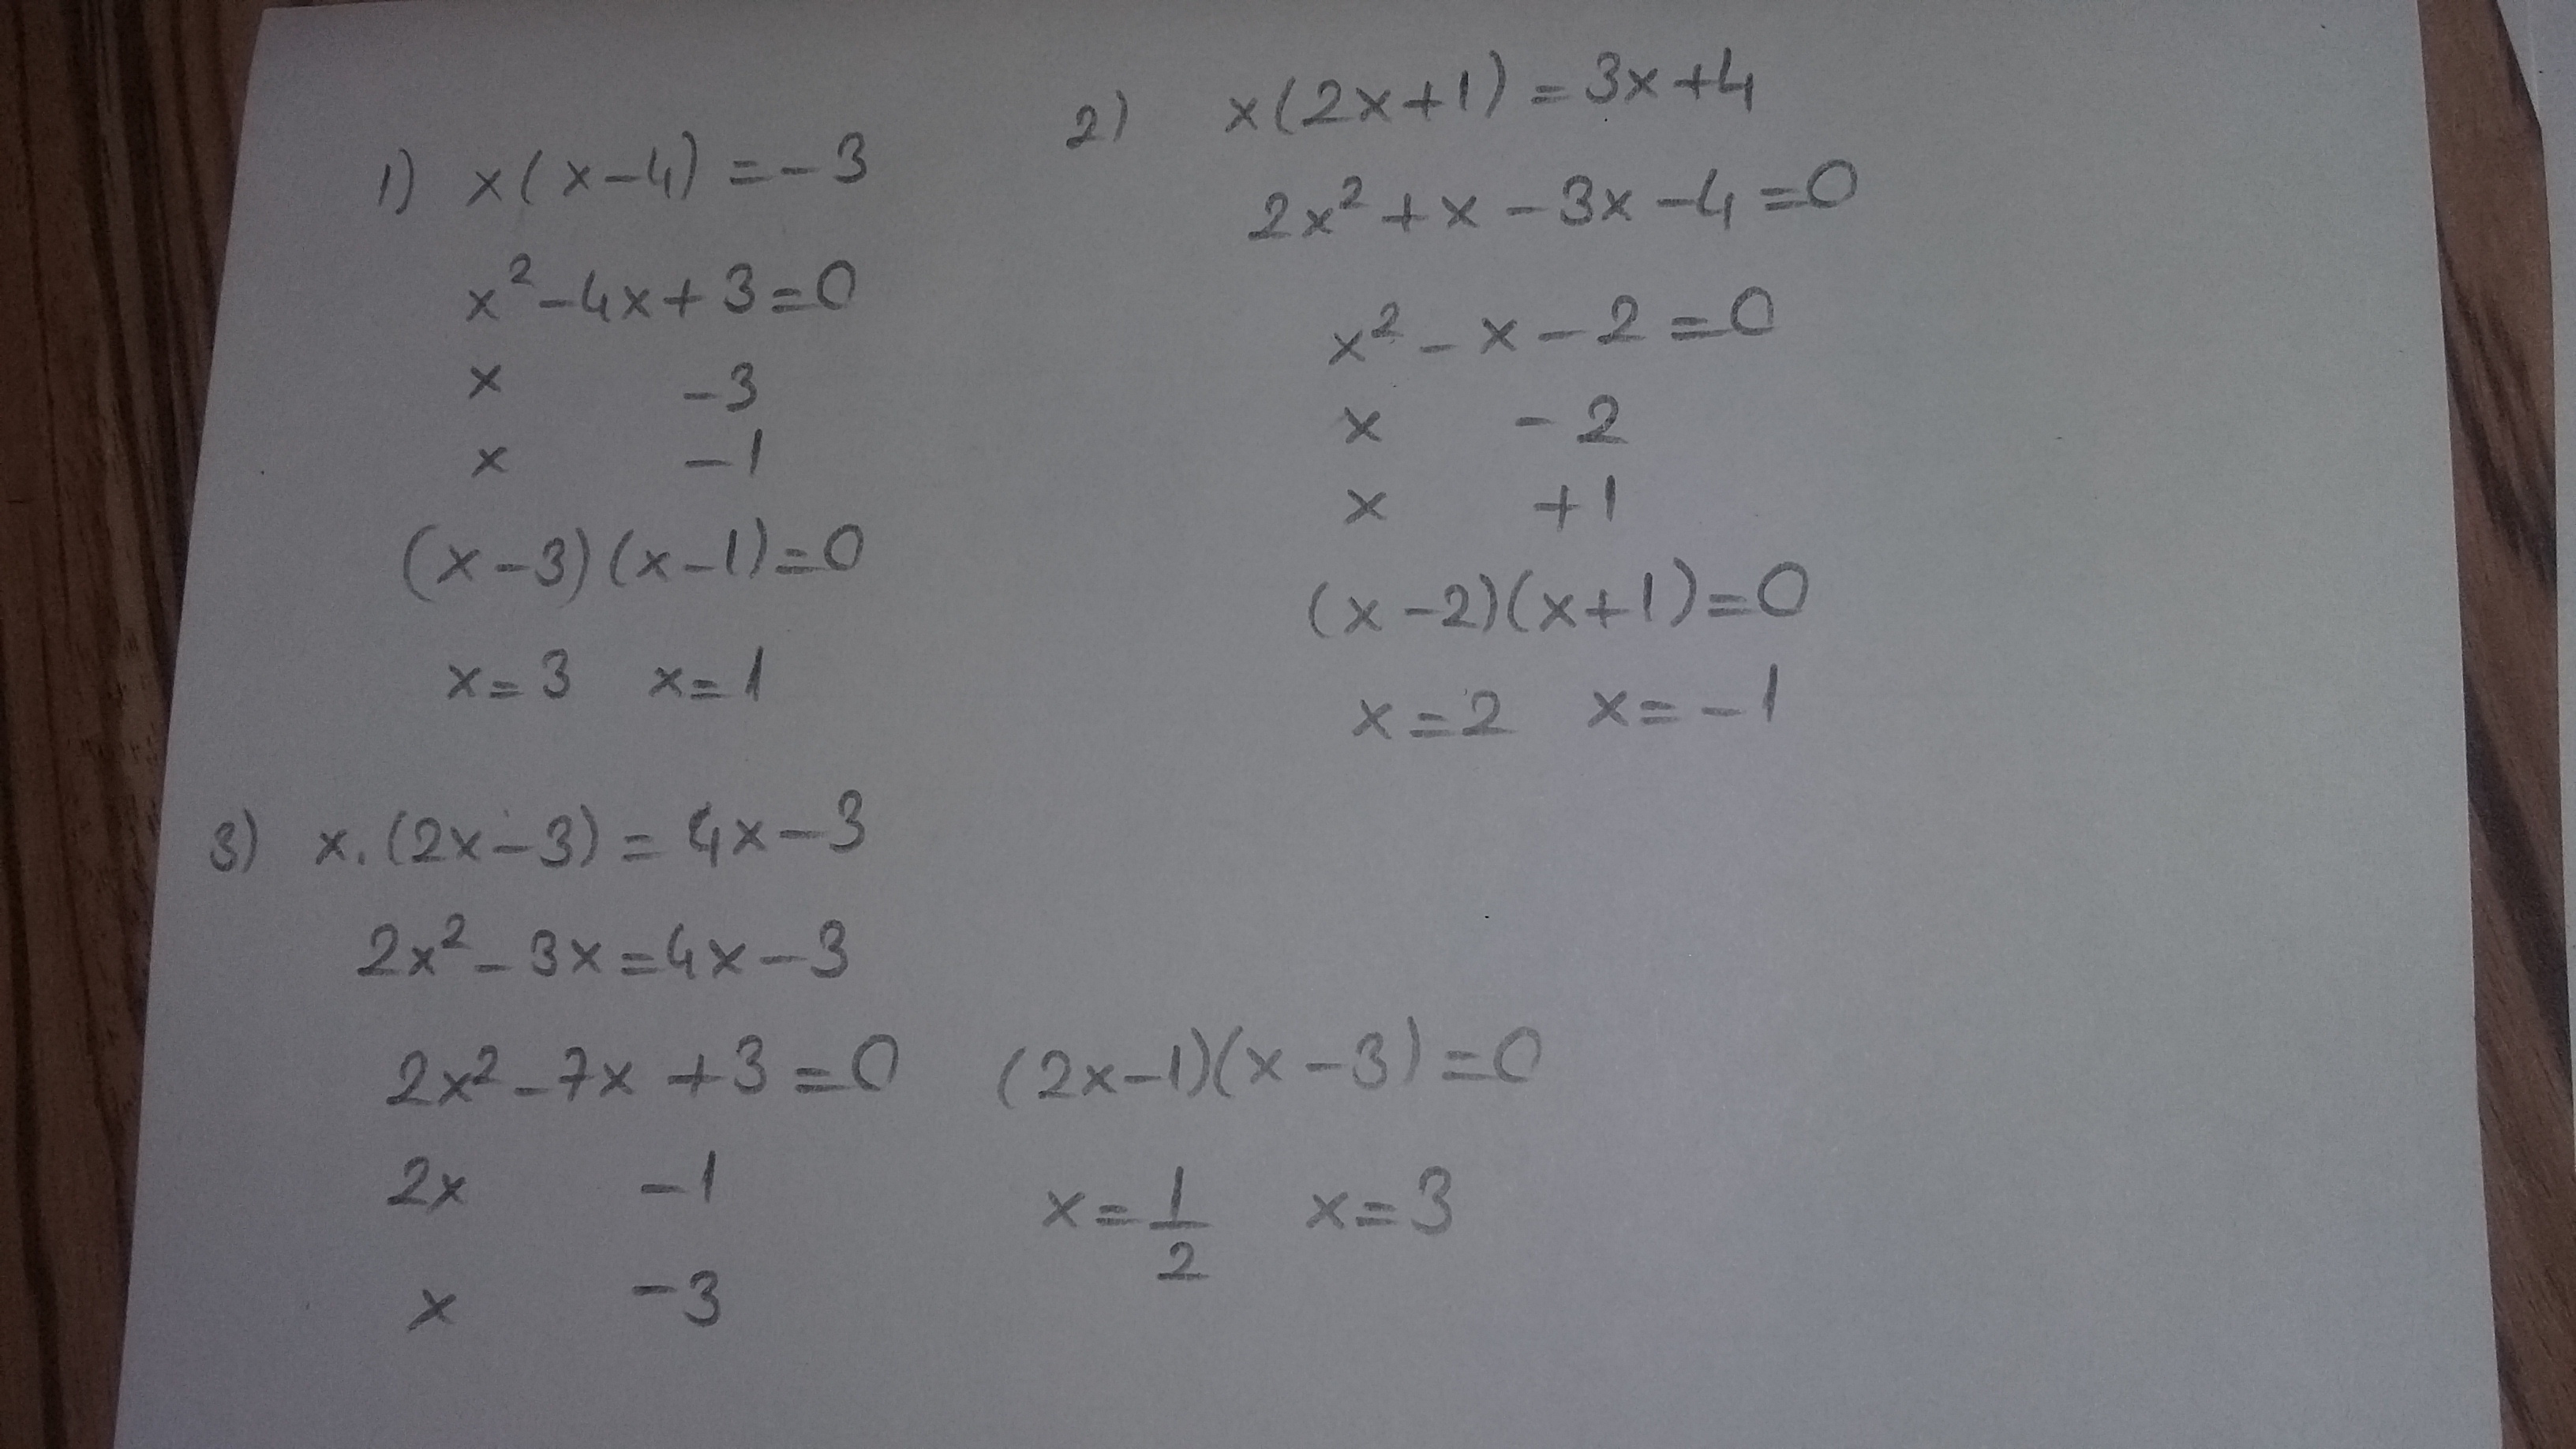 1) x(x-4)=-3
x²-4x+3=0
x -3
x -1
(x-3)(x-1)=0
x=3 x=1
2) x(2x+1)=3x+4
2x²+x-3x-4=0
x²-x-2=0
x -2
x +1
(x-2)(x+1)=0
x=2 x=-1
3) x.(2x-3)=4x-3
2x²-3x=4x-3
2x²-7x+3=0
2x -1
x -3
(2x-1)(x-3)=0
x=1/2 x=3